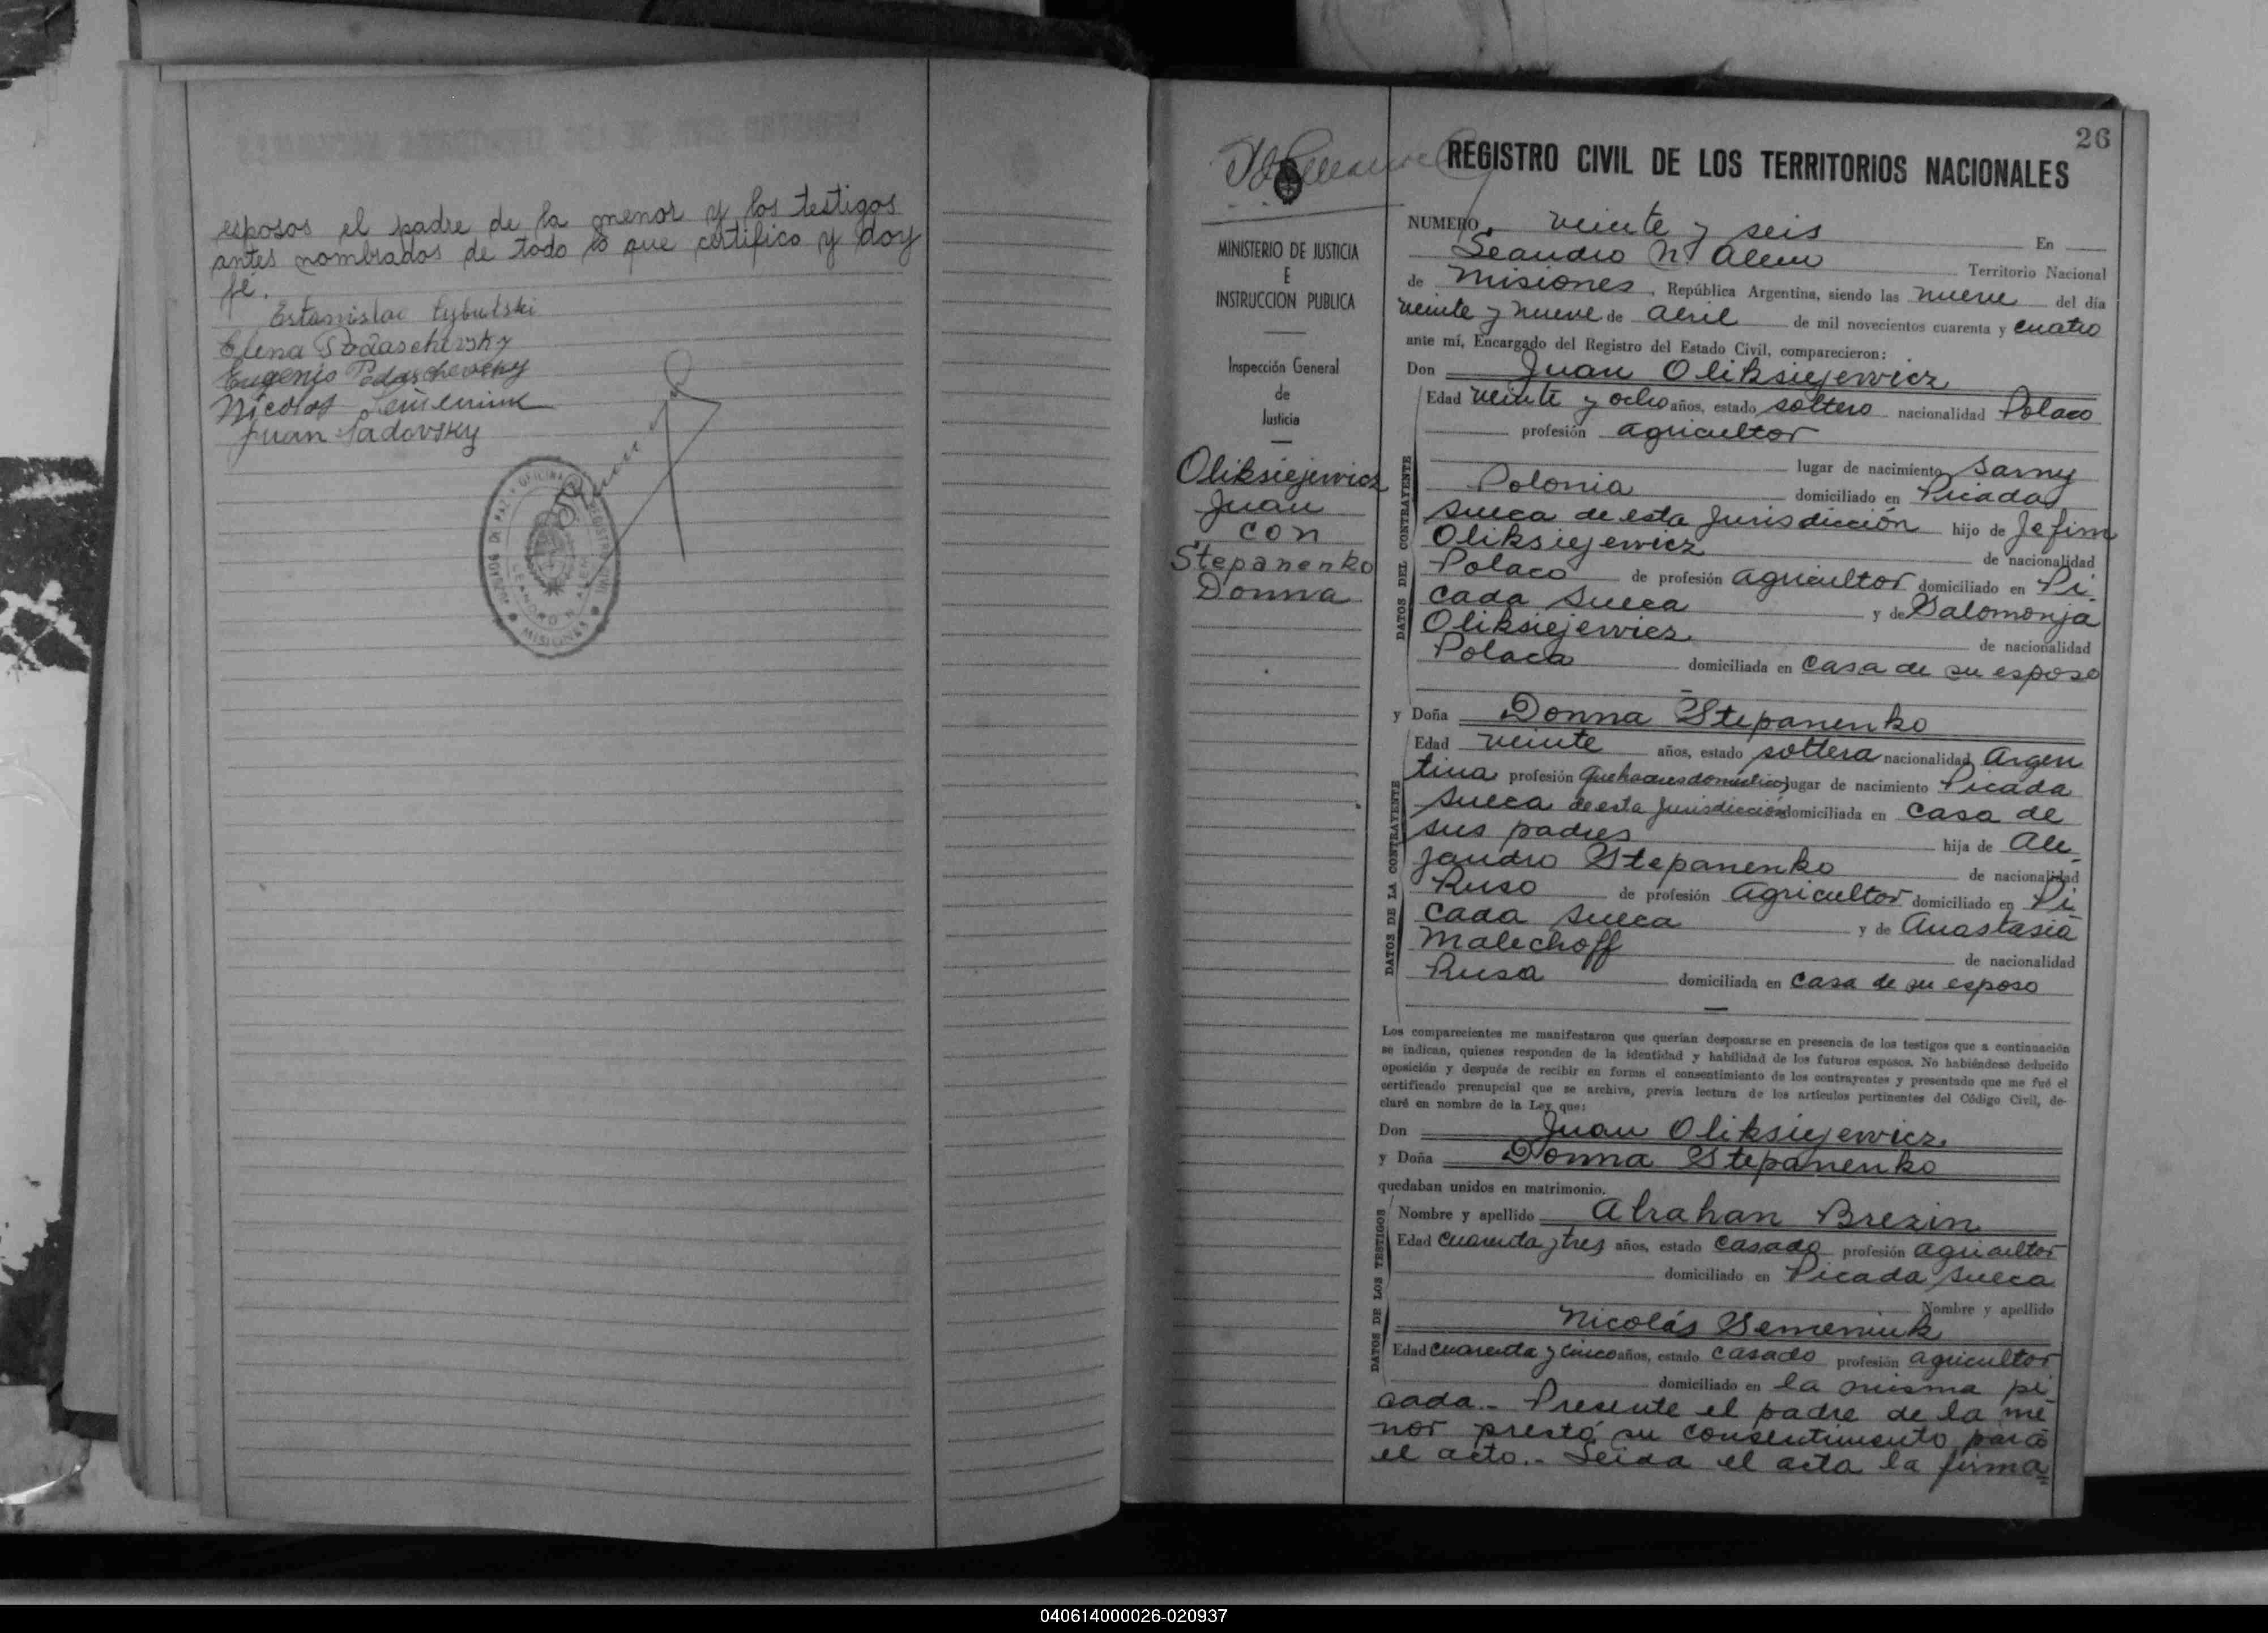 esposos el padre de la menor y los testigos
antes nombrados de todo lo que certifico y doy
fé.
Estanislao Cybulski
Elena Podaschevsky
Eugenio Podaschevsky
Nicolas Semeniuk
Juan Sadovsky
JUZGADO DE PAZ
LEANDRO N. ALEM
MISIONES
26
REGISTRO CIVIL DE LOS TERRITORIOS NACIONALES
MINISTERIO DE JUSTICIA
E
INSTRUCCION PUBLICA
Inspección General
de
Justicia
Oliksiejewicz
Juan
con
Stepanenko
Donna
NUMERO veinte y seis En
Leandro N. Alem Territorio Nacional
de Misiones, República Argentina, siendo las nueve del día
veinte y nueve de abril de mil novecientos cuarenta y cuatro
ante mí, Encargado del Registro del Estado Civil, comparecieron:
Don Juan Oliksiejewicz
DATOS DEL CONTRAYENTE
Edad veinte y ocho años, estado soltero nacionalidad Polaco
profesión agricultor
lugar de nacimiento Sarny
Polonia domiciliado en Picada
sueca de esta Jurisdicción hijo de Jefim
Oliksiejewicz de nacionalidad
Polaco de profesión agricultor domiciliado en Pi-
cada Sueca y de Salomonja
Oliksiejewicz de nacionalidad
Polaca domiciliada en casa de su esposo
y Doña Donna Stepanenko
DATOS DE LA CONTRAYENTE
Edad veinte años, estado soltera nacionalidad Argen
tina profesión quehaceres domésticos lugar de nacimiento Picada
Sueca de esta Jurisdicción domiciliada en casa de
sus padres hija de Ale-
jandro Stepanenko de nacionalidad
Ruso de profesión Agricultor domiciliado en Pi
cada Sueca y de Anastasia
Malechoff de nacionalidad
Rusa domiciliada en casa de su esposo
Los comparecientes me manifestaron que querían desposarse en presencia de los testigos que a continuación
se indican, quienes responden de la identidad y habilidad de los futuros esposos. No habiéndose deducido
oposición y después de recibir en forma el consentimiento de los contrayentes y presentado que me fué el
certificado prenupcial que se archiva, previa lectura de los artículos pertinentes del Código Civil, de-
claré en nombre de la Ley que:
Don Juan Oliksiejewicz
y Doña Donna Stepanenko
quedaban unidos en matrimonio.
DATOS DE LOS TESTIGOS
Nombre y apellido Abrahan Brezin
Edad cuarenta y tres años, estado casado profesión agricultor
domiciliado en Picada Sueca
Nombre y apellido
Nicolás Semeniuk
Edad cuarenta y cinco años, estado casado profesión agricultor
domiciliado en la misma pi
cada.- Presente el padre de la me
nor prestó su consentimiento para
el acto.- Leida el acta la firma=
040614000026-020937